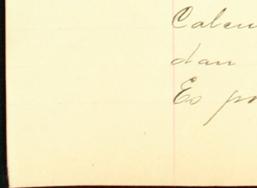 Calen
dan
Es pr